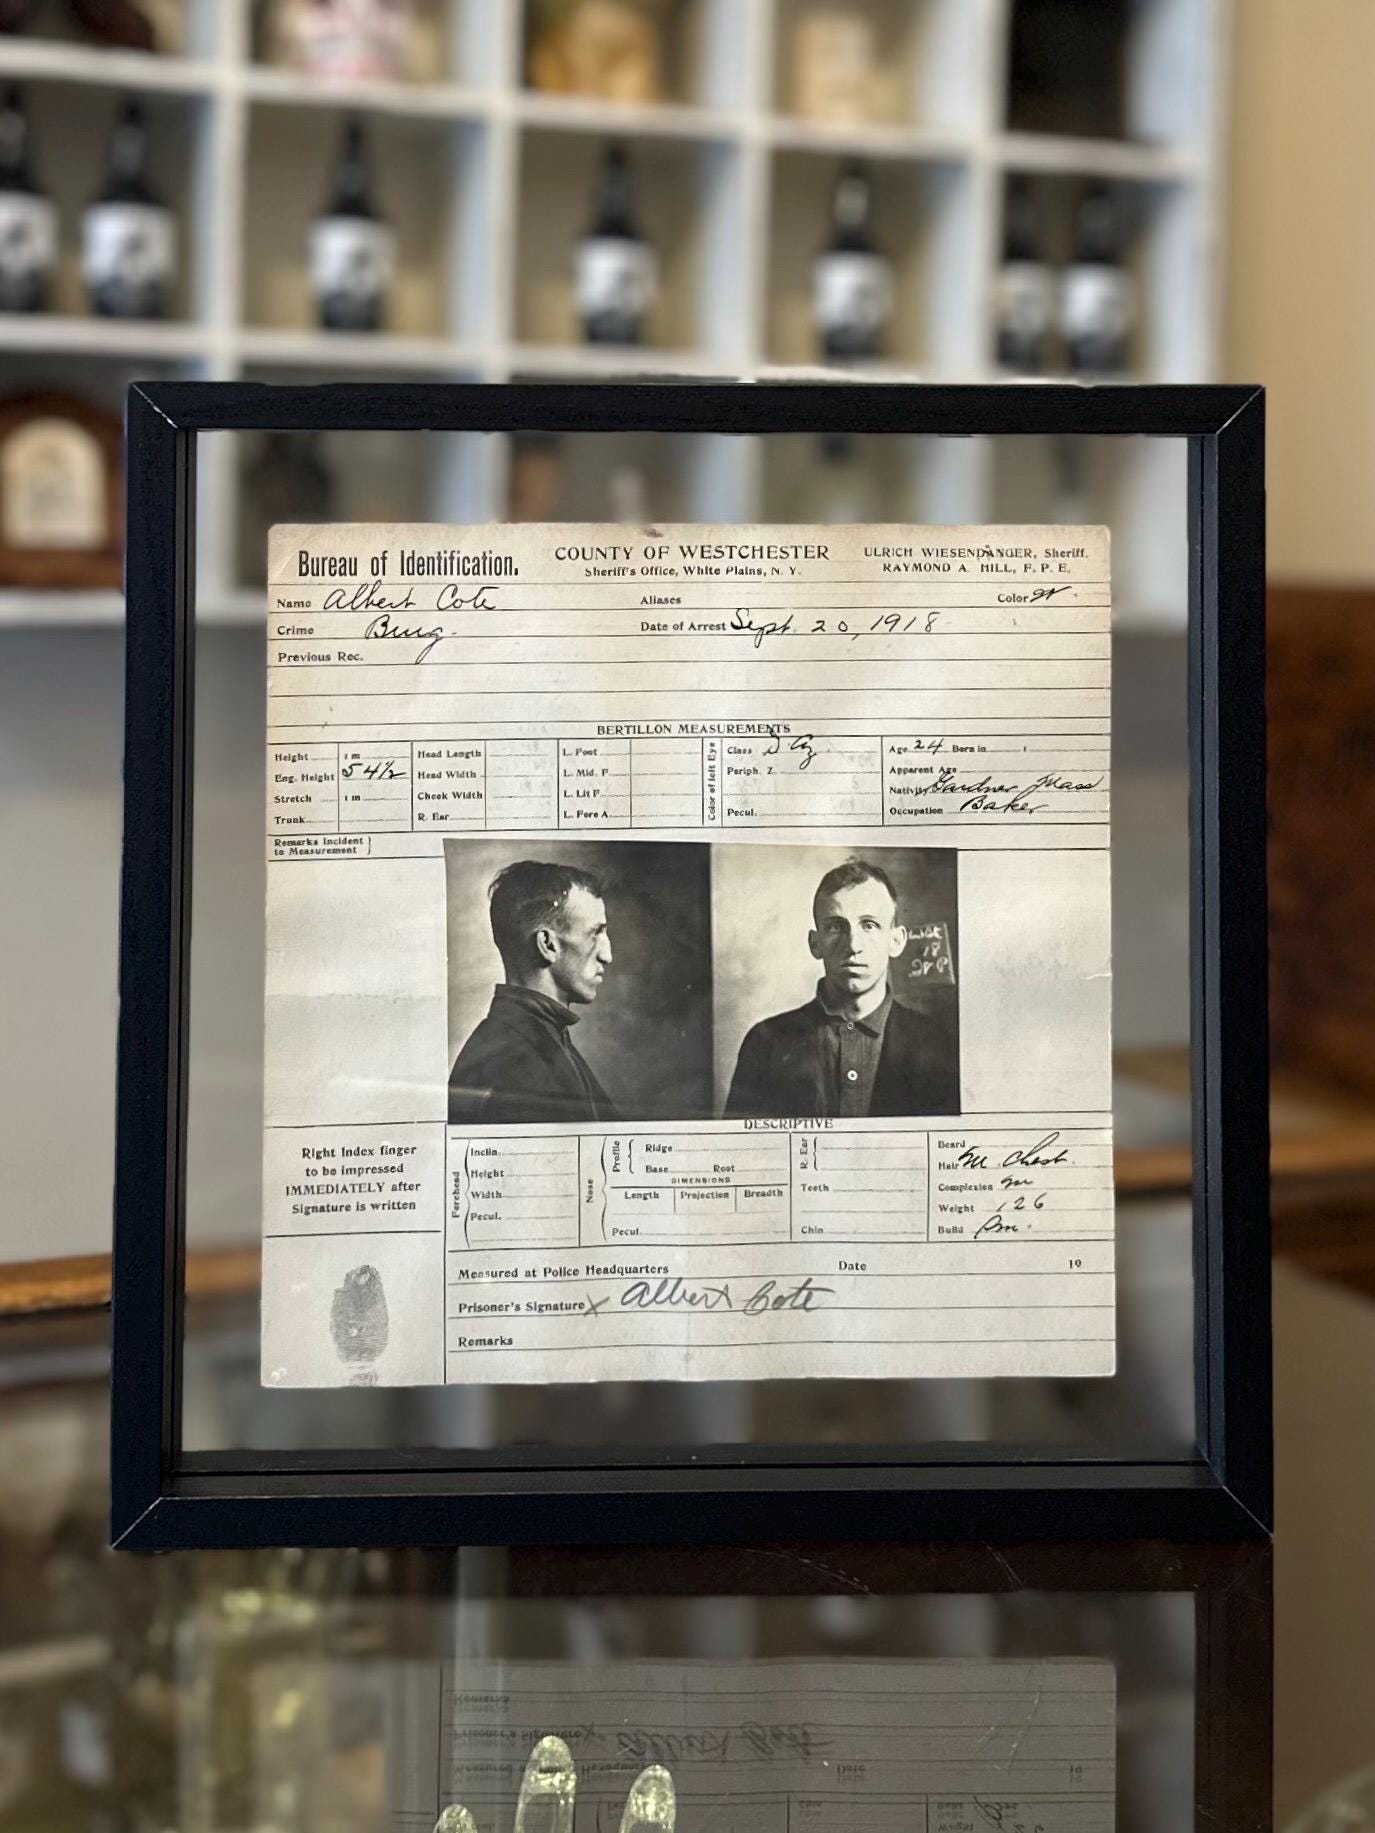 Bureau of Identification.
COUNTY OF WESTCHESTER
Sheriff's Office, White Plains, N. Y.
ULRICH WIESENDANGER, Sheriff.
RAYMOND A. HILL, F. P. E.
Name Albert Cote Aliases Color W.
Crime Burg. Date of Arrest Sept. 20, 1918
Previous Rec.
BERTILLON MEASUREMENTS
Height 1 m
Eng. Height 5 4½
Stretch 1 m
Trunk
Head Length
Head Width
Cheek Width
R. Ear
L. Foot
L. Mid. F
L. Lit F
L. Fore A
Color of left Eye
Class
Periph. Z.
Pecul.
Age 24 Born in
Apparent Age
Nativity Gardner Mass
Occupation Baker
Remarks Incident
to Measurement
18
DESCRIPTIVE
Right Index finger
to be impressed
IMMEDIATELY after
Signature is written
Forehead
Inclin.
Height
Width
Pecul.
Nose
Profile
Ridge
Base Root
DIMENSIONS
Length Projection Breadth
Pecul.
R. Ear
Teeth
Chin
Beard
Hair M. Chest.
Complexion M
Weight 126
Build
Measured at Police Headquarters Date 19
Prisoner's Signature X Albert Cote
Remarks